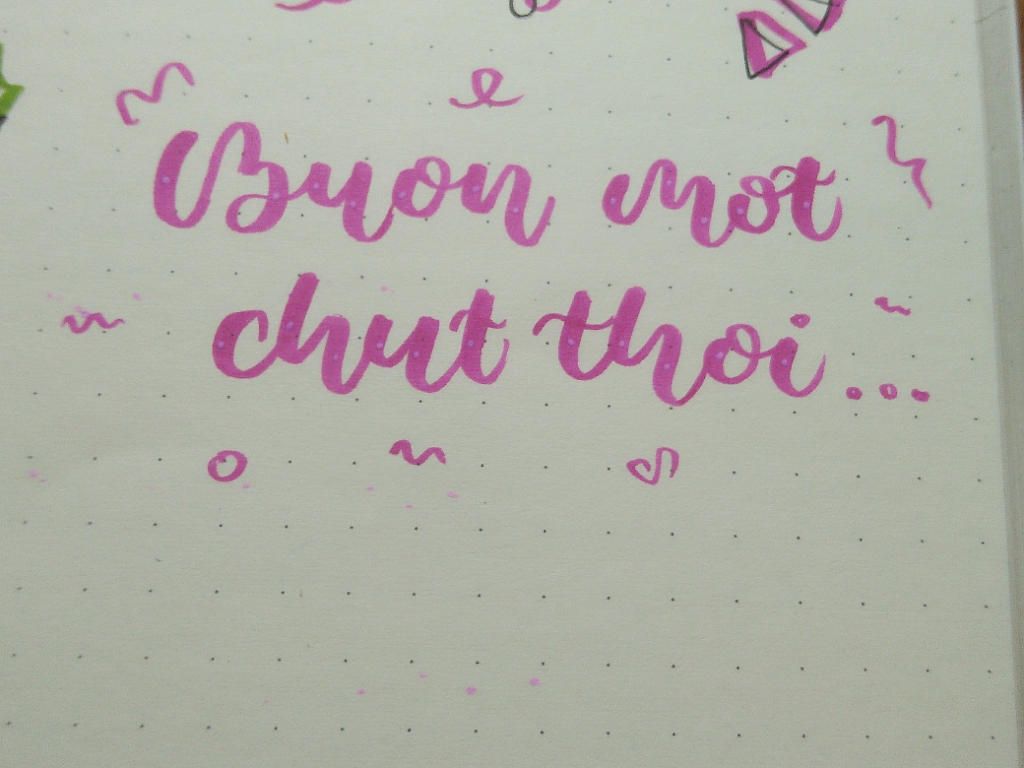 Buon mot
chut thoi...